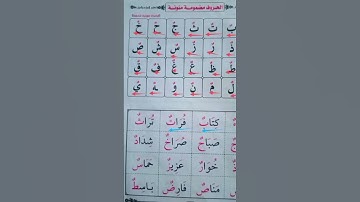 الحروف مضمومة منونة
بٌ تٌ ثٌ جٌ حٌ خٌ
ذٌ رٌ زٌ سٌ شٌ صٌ
طٌ ظٌ عٌ غٌ فٌ قٌ
لٌ مٌ نٌ وٌ هٌ يٌ
كِتَابٌ فُرَاتٌ تُرَاثٌ
صَبَاحٌ صُرَاخٌ شِدَادٌ
خُوَارٌ عَزِيزٌ حَمَاسٌ
مَنَاصٌ فَارِضٌ بَاسِطٌ